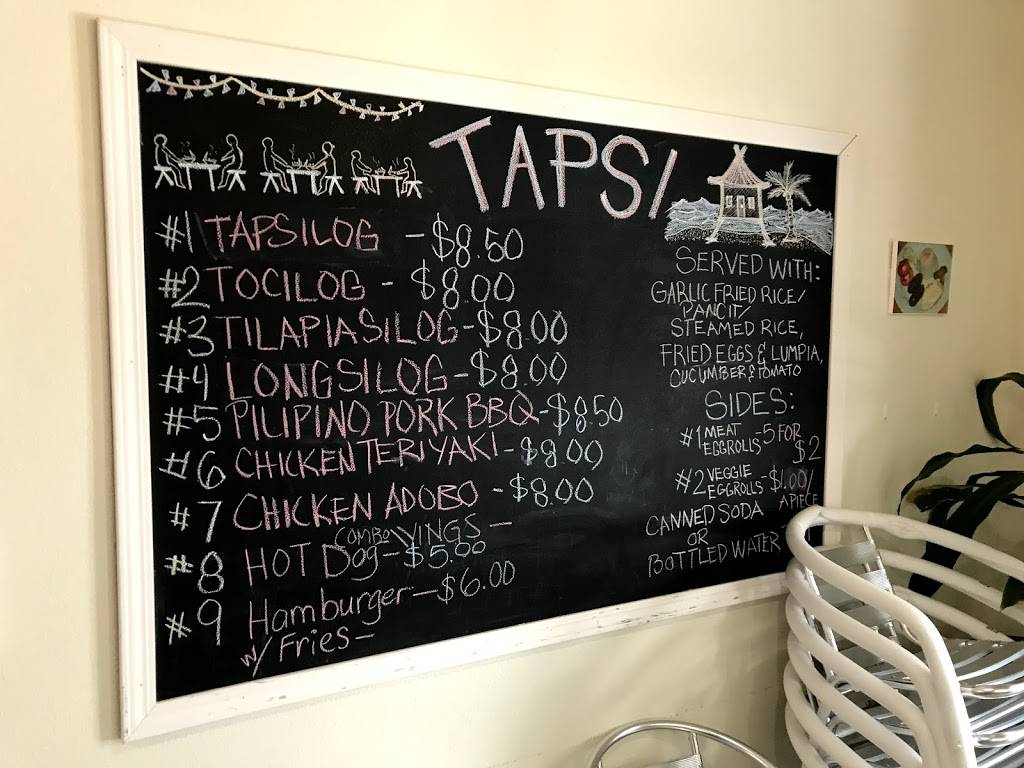 TAPSI
#1 TAPSILOG - $8.50
#2 TOCILOG - $8.00
#3 TILAPIASILOG - $8.00
#4 LONGSILOG - $8.00
#5 PILIPINO PORK BBQ - $8.50
#6 CHICKEN TERIYAKI - $8.00
#7 CHICKEN ADOBO - $8.00
COMBO WINGS —
#8 HOT Dog — $5.00
#9 Hamburger — $6.00
w/ Fries —
SERVED WITH:
GARLIC FRIED RICE/
PANCIT/
STEAMED RICE,
FRIED EGGS & LUMPIA,
CUCUMBER & TOMATO
SIDES:
#1 MEAT EGGROLLS - 5 FOR $2
#2 VEGGIE EGGROLLS - $1.00/ APIECE
CANNED SODA
OR
BOTTLED WATER